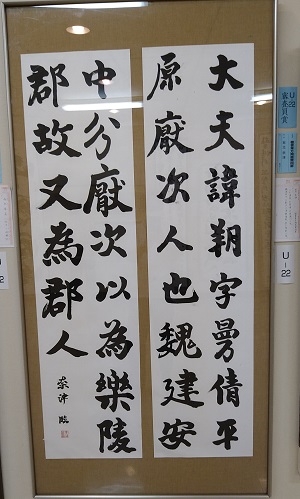 大夫諱朔字曼倩平
原厭次人也魏建安
中分厭次以為樂陵
郡故又為郡人
臨
U-22
U-22
22